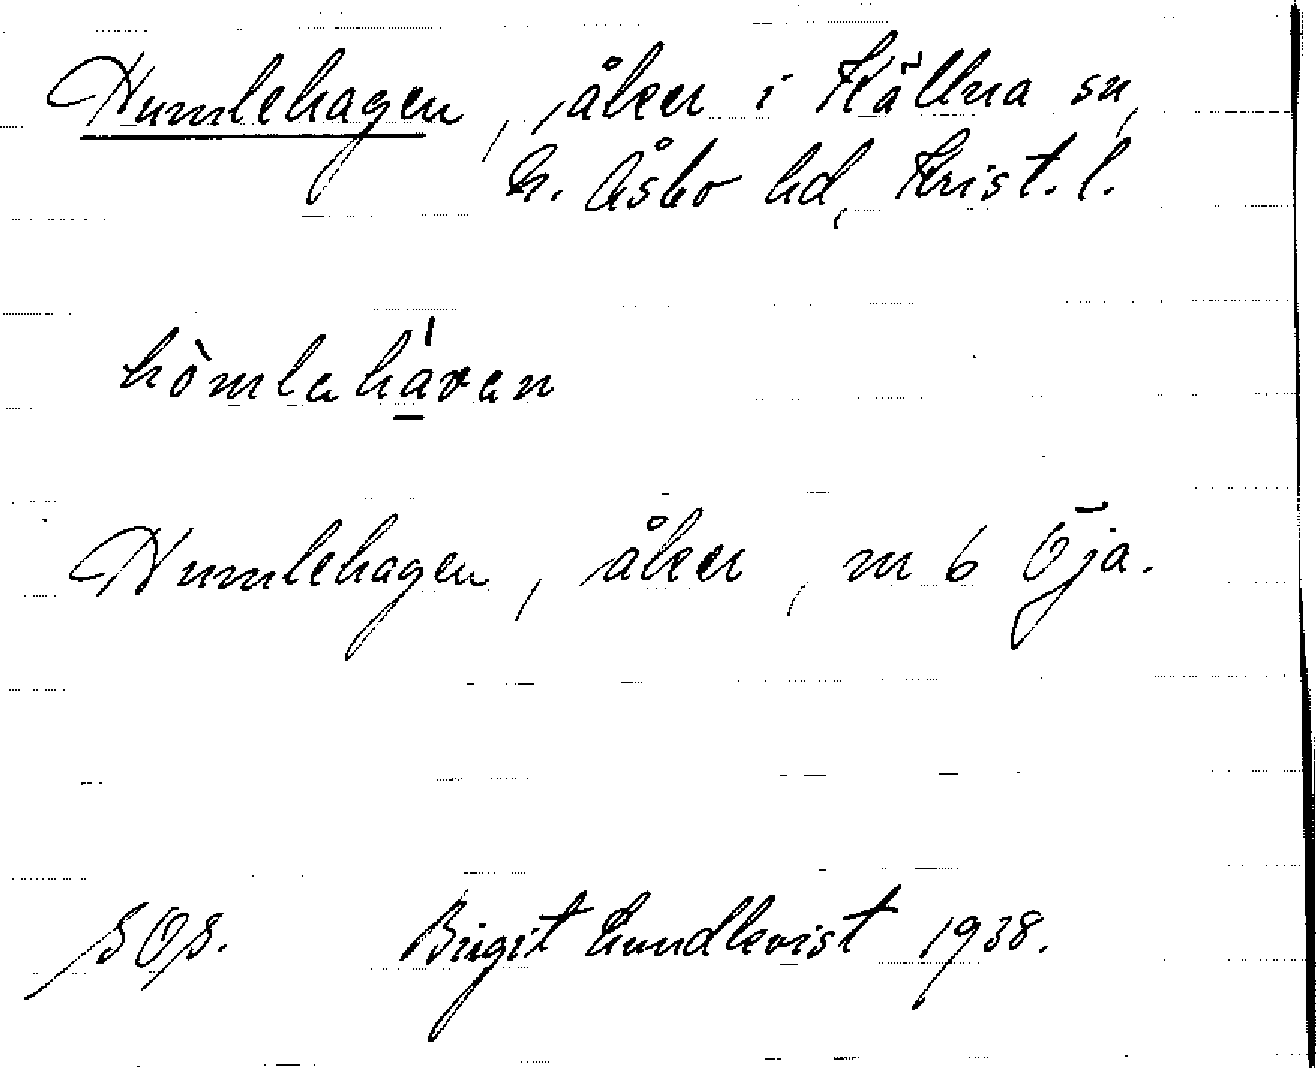 Humlehagen, åker i Källna sn,
N. Åsbo hd, Krist. l.
hòmlahávan
Humlehagen, åker, m 6 Öja.
SOJ. Birgit Lundkvist 1938.